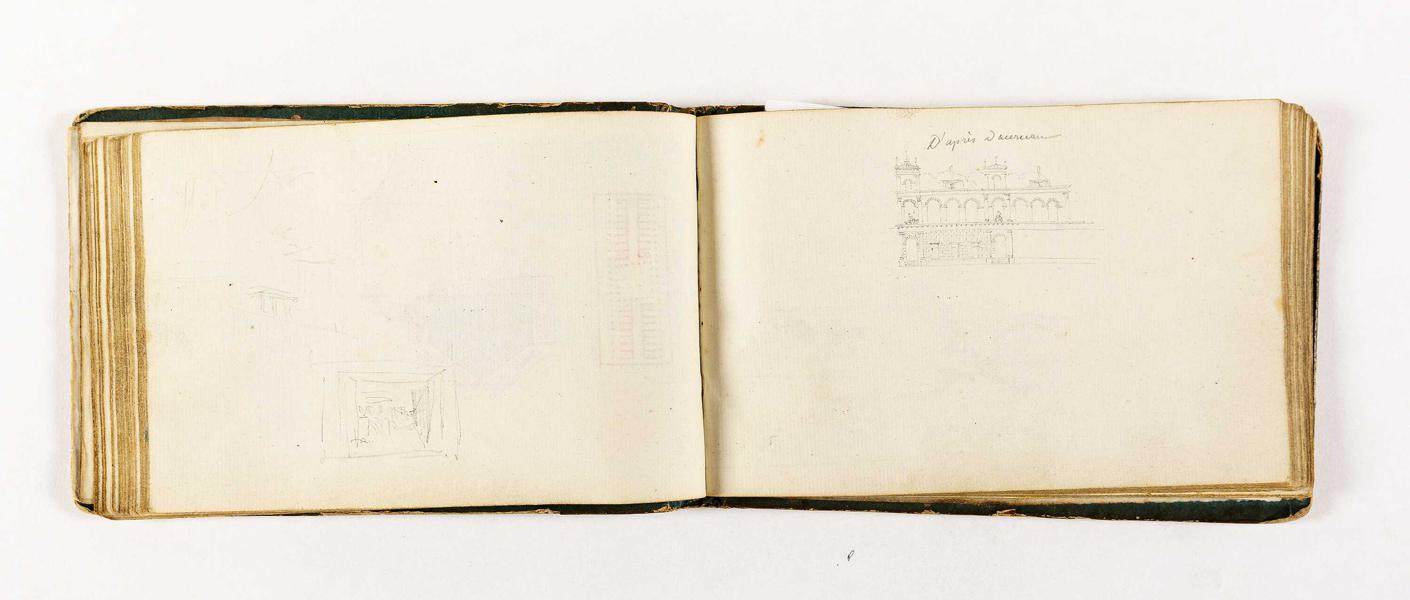 D'après Ducerceau